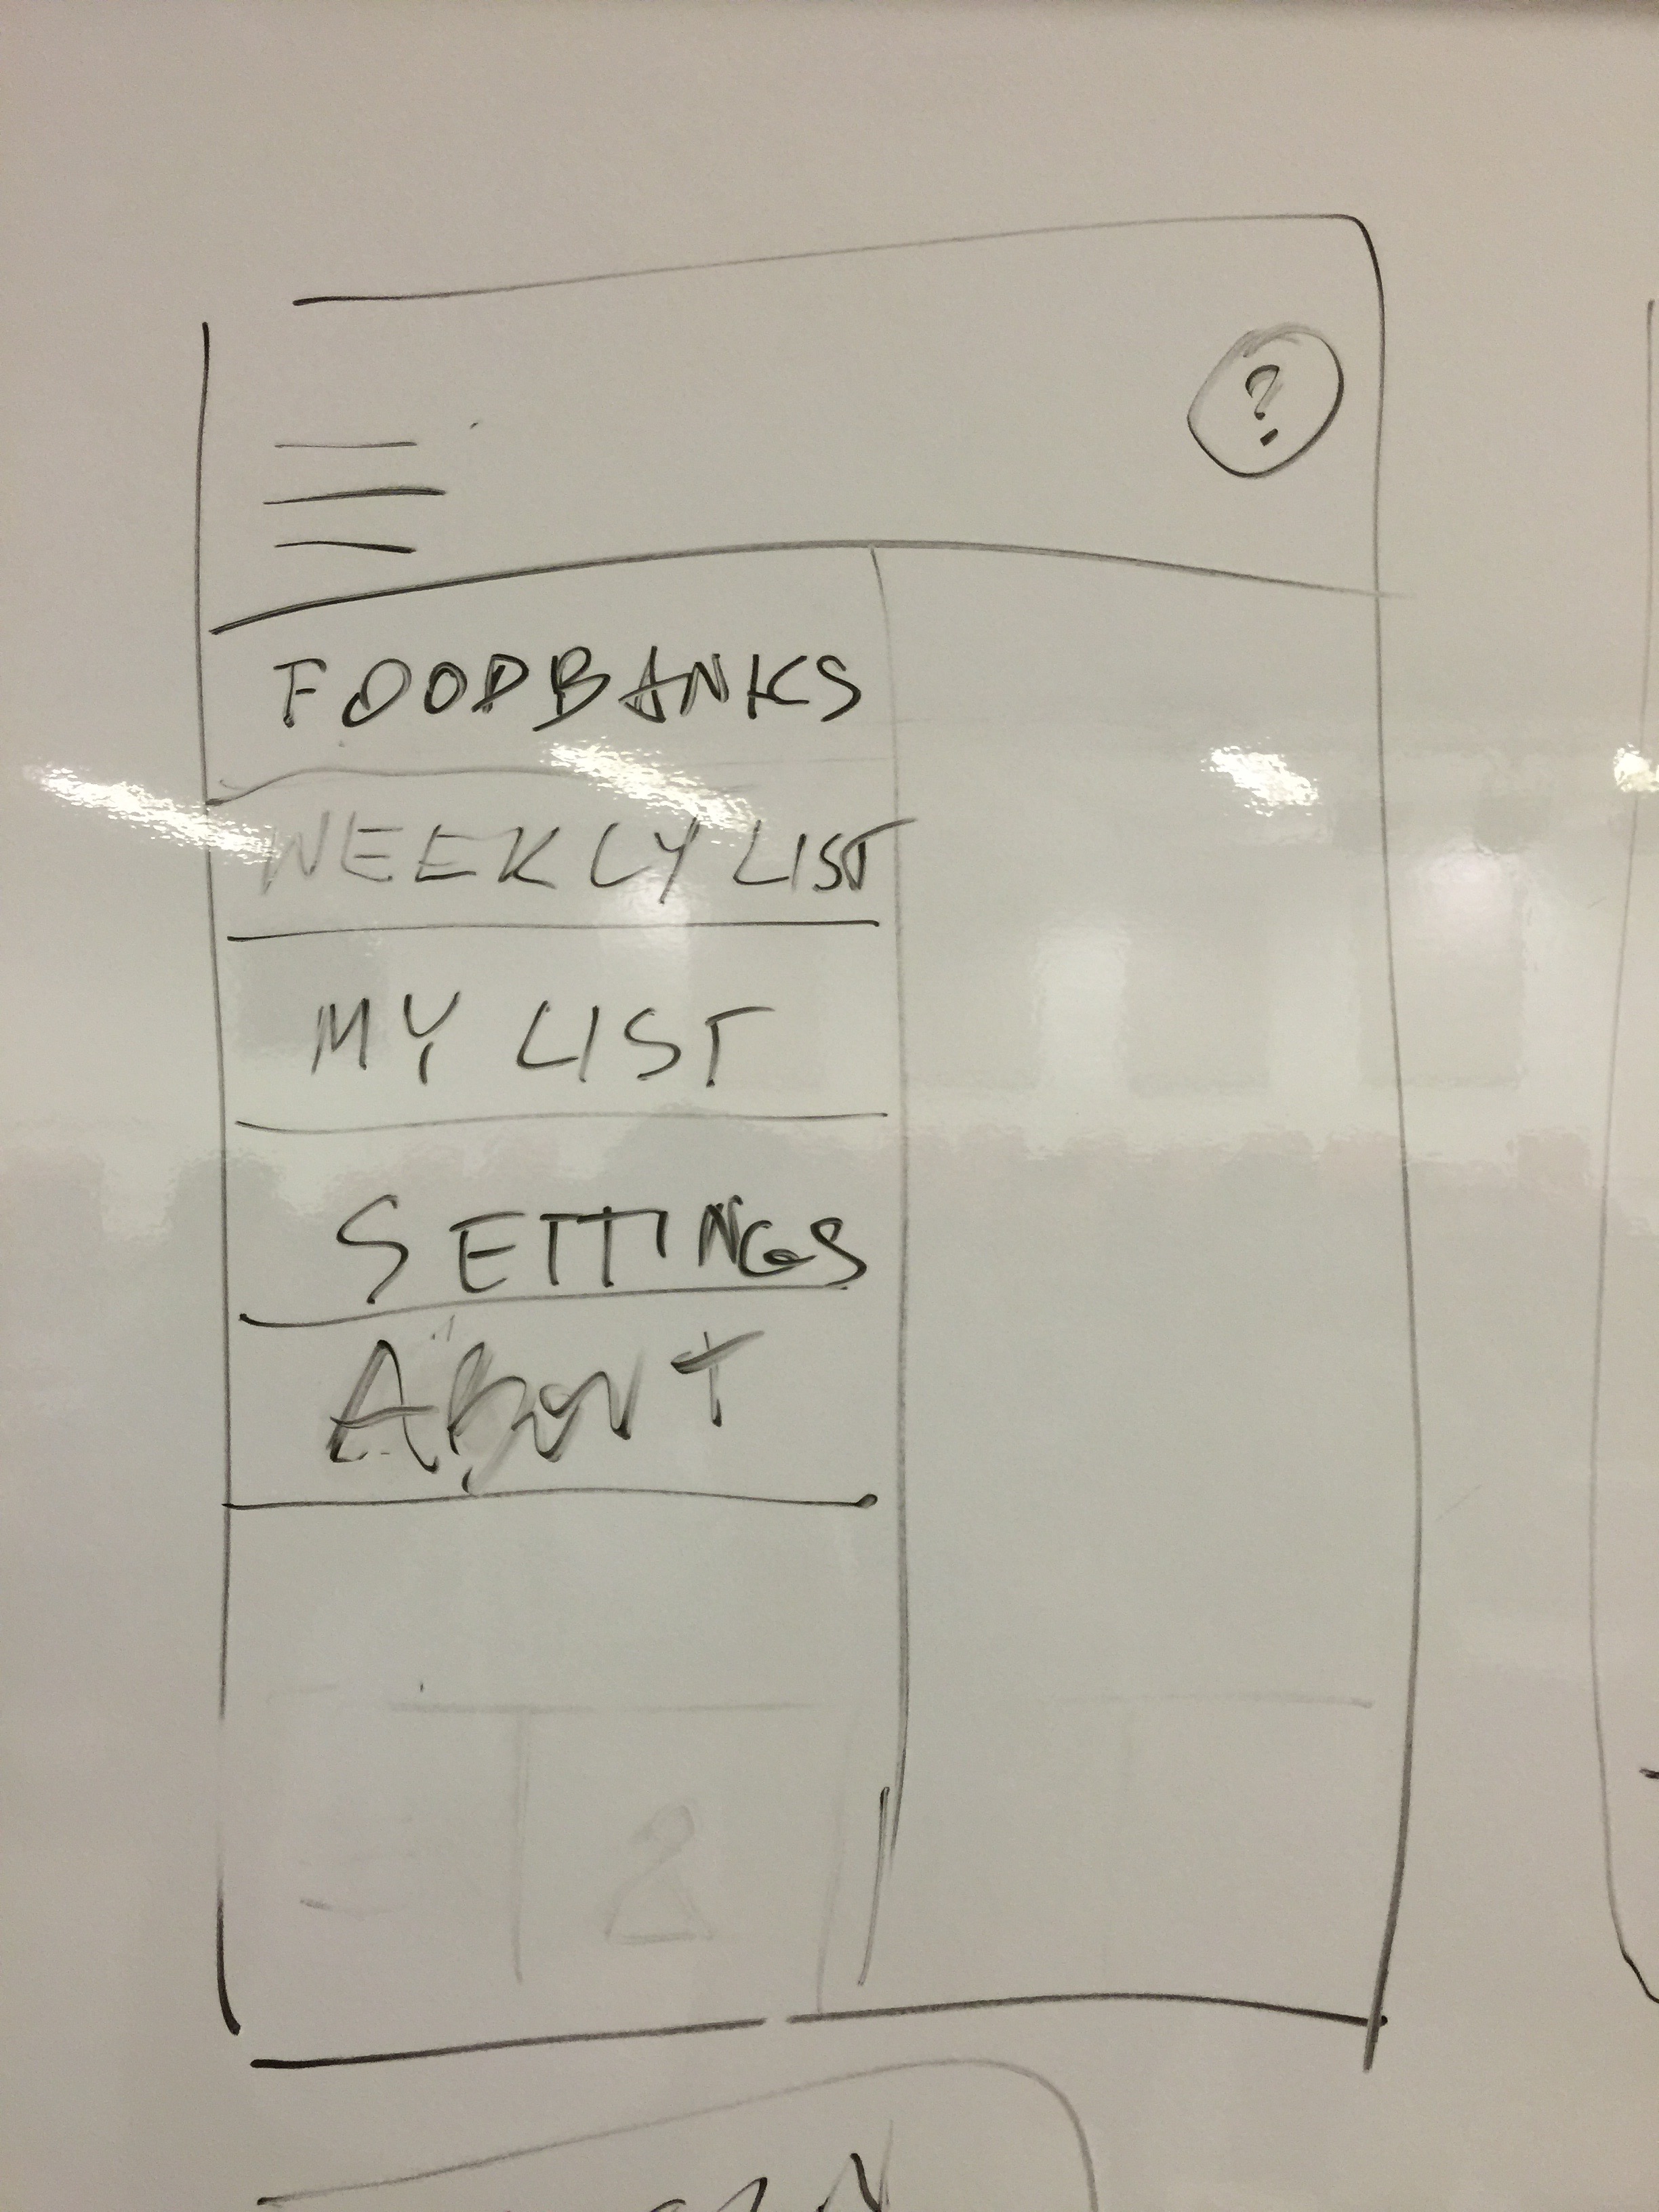 ?
FOODBANKS
WEEKLY LIST
MY LIST
SETTINGS
ABOUT